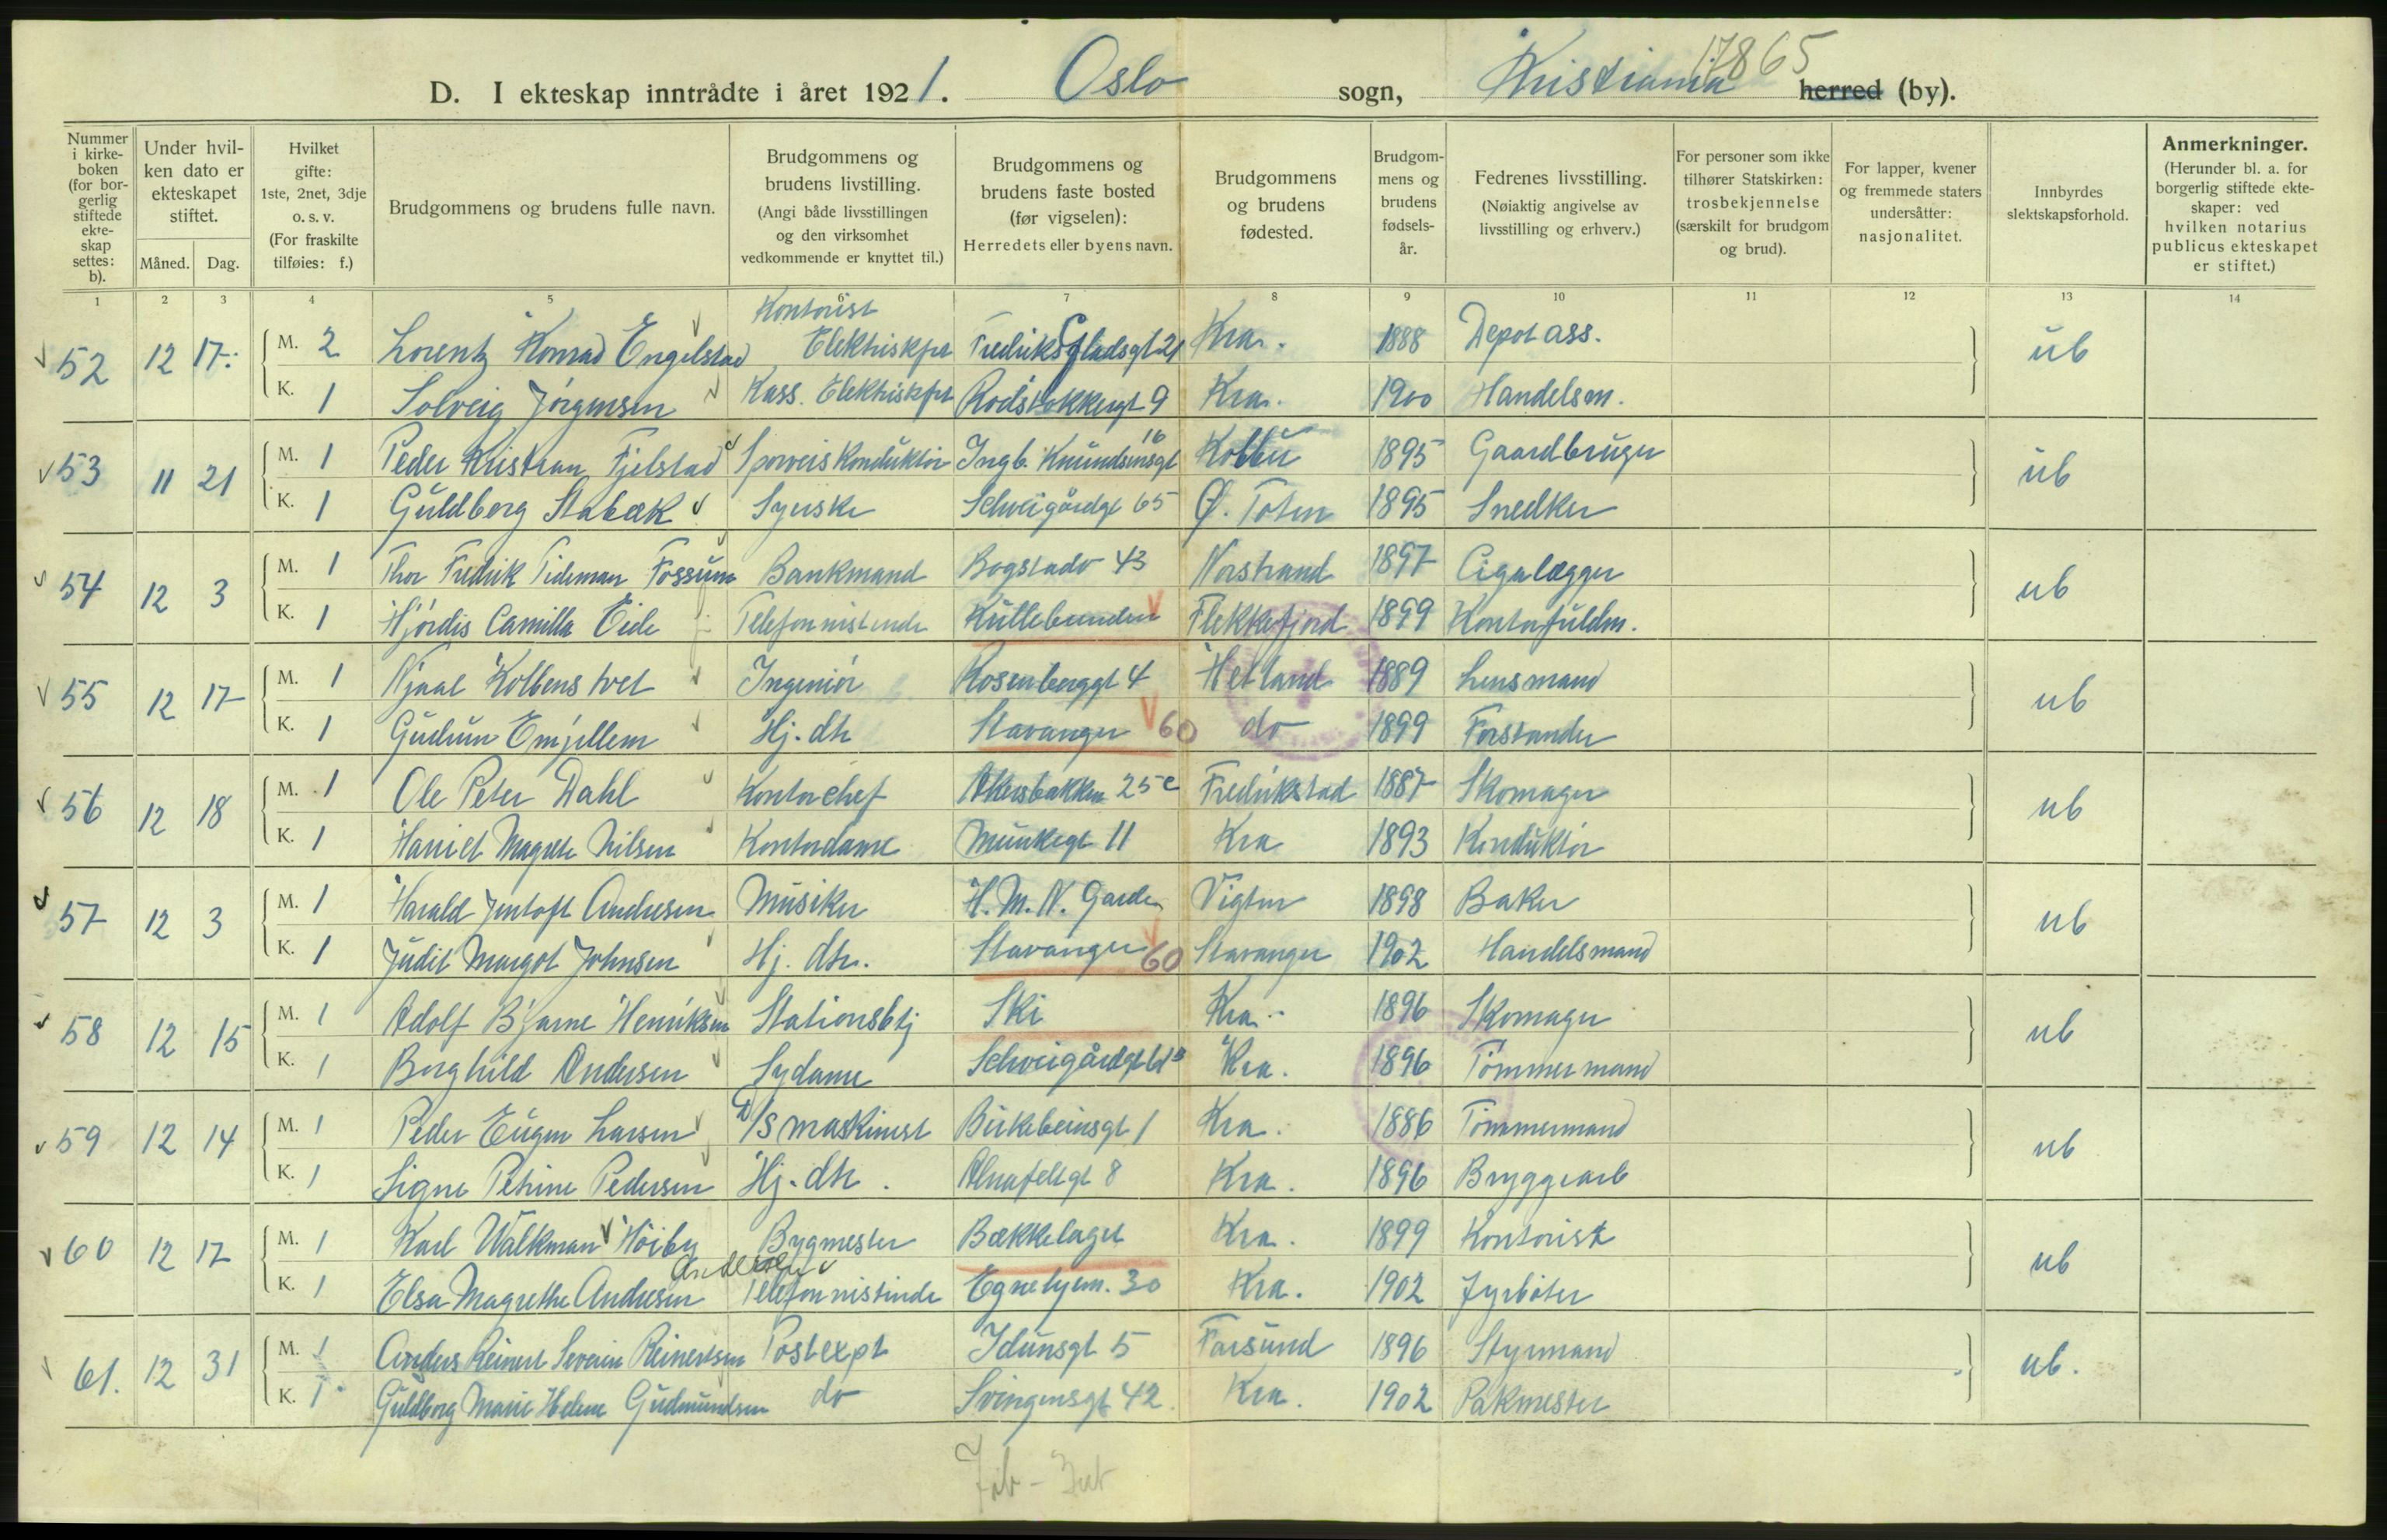 17865
D. I ekteskap inntrådte i året 1921. Oslo sogn, Kristiania herred (by).
Nummer i kirkeboken (for borgerlig stiftede ekteskap settes: b).
Under hvilken dato er ekteskapet stiftet.
Måned. Dag.
Hvilket gifte: 1ste, 2net, 3dje o. s. v. (For fraskilte tilføies: f.)
Brudgommens og brudens fulle navn.
Brudgommens og brudens livstilling. (Angi både livsstillingen og den virksomhet vedkommende er knyttet til.)
Brudgommens og brudens faste bosted (før vigselen): Herredets eller byens navn.
Brudgommens og brudens fødested.
Brudgommens og brudens fødselsår.
Fedrenes livsstilling. (Nøiaktig angivelse av livsstilling og erhverv.)
For personer som ikke tilhører Statskirken: trosbekjennelse (særskilt for brudgom og brud).
For lapper, kvener og fremmede staters undersåtter: nasjonalitet.
Innbyrdes slektskapsforhold.
Anmerkninger. (Herunder bl. a. for borgerlig stiftede ekteskaper: ved hvilken notarius publicus ekteskapet er stiftet.)
1 2 3 4 5 6 7 8 9 10 11 12 13 14
52 12 17 M. 2 Lorentz Konrad Engelstad Kontorist Elektriskfor Fredriksstadsgt 21 Kra. 1888 Depotass. ub
K. 1 Solveig Jörgensen Kass. Elektriskfor Rodeløkkengt 9 Kra. 1900 Handelsm.
53 11 21 M. 1 Peder Kristian Fjelstad Sporveiskonduktör Ingb. Knudsensgt 16 Kolbu 1895 Gaardbruger ub
K. 1 Guldborg Stabæk Syerske Schveigårdgt 65 Ø. Toten 1895 Snedker
54 12 3 M. 1 Thor Fredrik Tideman Fossum Bankmand Bogstadv 43 Norstrand 1897 Cigalægger ub
K. 1 Hjördis Camilla Eide Telefonnistinde Kullebunden Flekkefjord 1899 Kontorfuldm.
55 12 17 M. 1 Njaal Kolbenstvet Ingeniör Rosenberggt 4 Hetland 1889 Lensmand ub
K. 1 Gudrun Emjellem Hj. dtr Stavanger 60 do 1899 Forstander
56 12 18 M. 1 Ole Peter Dahl Kontorchef Akersbakken 25c Fredrikstad 1887 Skomager ub
K. 1 Harriet Magrete Nilsen Kontordame Munkegt 11 Kra 1893 Konduktör
57 12 3 M. 1 Harald Jentoft Andresen Musiker H. M. N. Garde Vigten 1898 Baker ub
K. 1 Judit Margot Johnsen Hj. dtr. Stavanger 60 Stavanger 1902 Handelsmand
58 12 15 M. 1 Adolf Bjarne Henriksen Stationsbtj Ski Kra. 1896 Skomager ub
K. 1 Borghild Andersen Sydame Schveigårdgt Kra. 1896 Tömmermand
59 12 14 M. 1 Peder Eugen Larsen D/S maskinist Birkebeinsgt 1 Kra. 1886 Tömmermand ub
K. 1 Signe Petrine Pedersen Hj. dtr. Alnafeltgt 8 Kra. 1896 Bryggearb
60 12 17 M. 1 Karl Walkman Höiby Bygmester Bækkelaget Kra. 1899 Kontorist ub
Andersen
K. 1 Elsa Magrethe Andresen Telefonnistinde Egnehjem. 30 Kra. 1902 Fyrböter
61. 12 31 M. 1 Anders Reinert Severin Reinertsen Postexpt Idunsgt 5 Farsund 1896 Styrmand ub.
K. 1 Guldborg Marie Helene Gudmundsen do Svingensgt 42 Kra. 1902 Pakmester